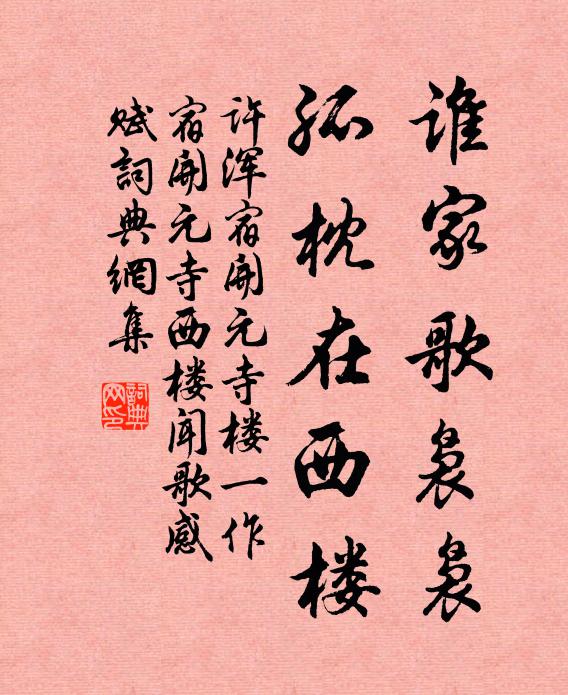 谁家歌袅袅
孤枕在西楼
许浑宿开元寺楼一作
宿开元寺西楼闻歌感
赋詞典網集
詞典
网印